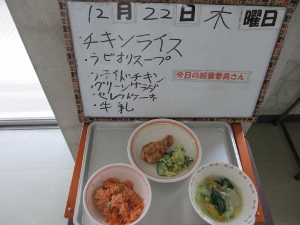 12月22日木曜日
・チキンライス
・ラビオリスープ
・フライドチキン
・グリーンサラダ
・セレクトケーキ
・牛乳
今日の給食委員さん